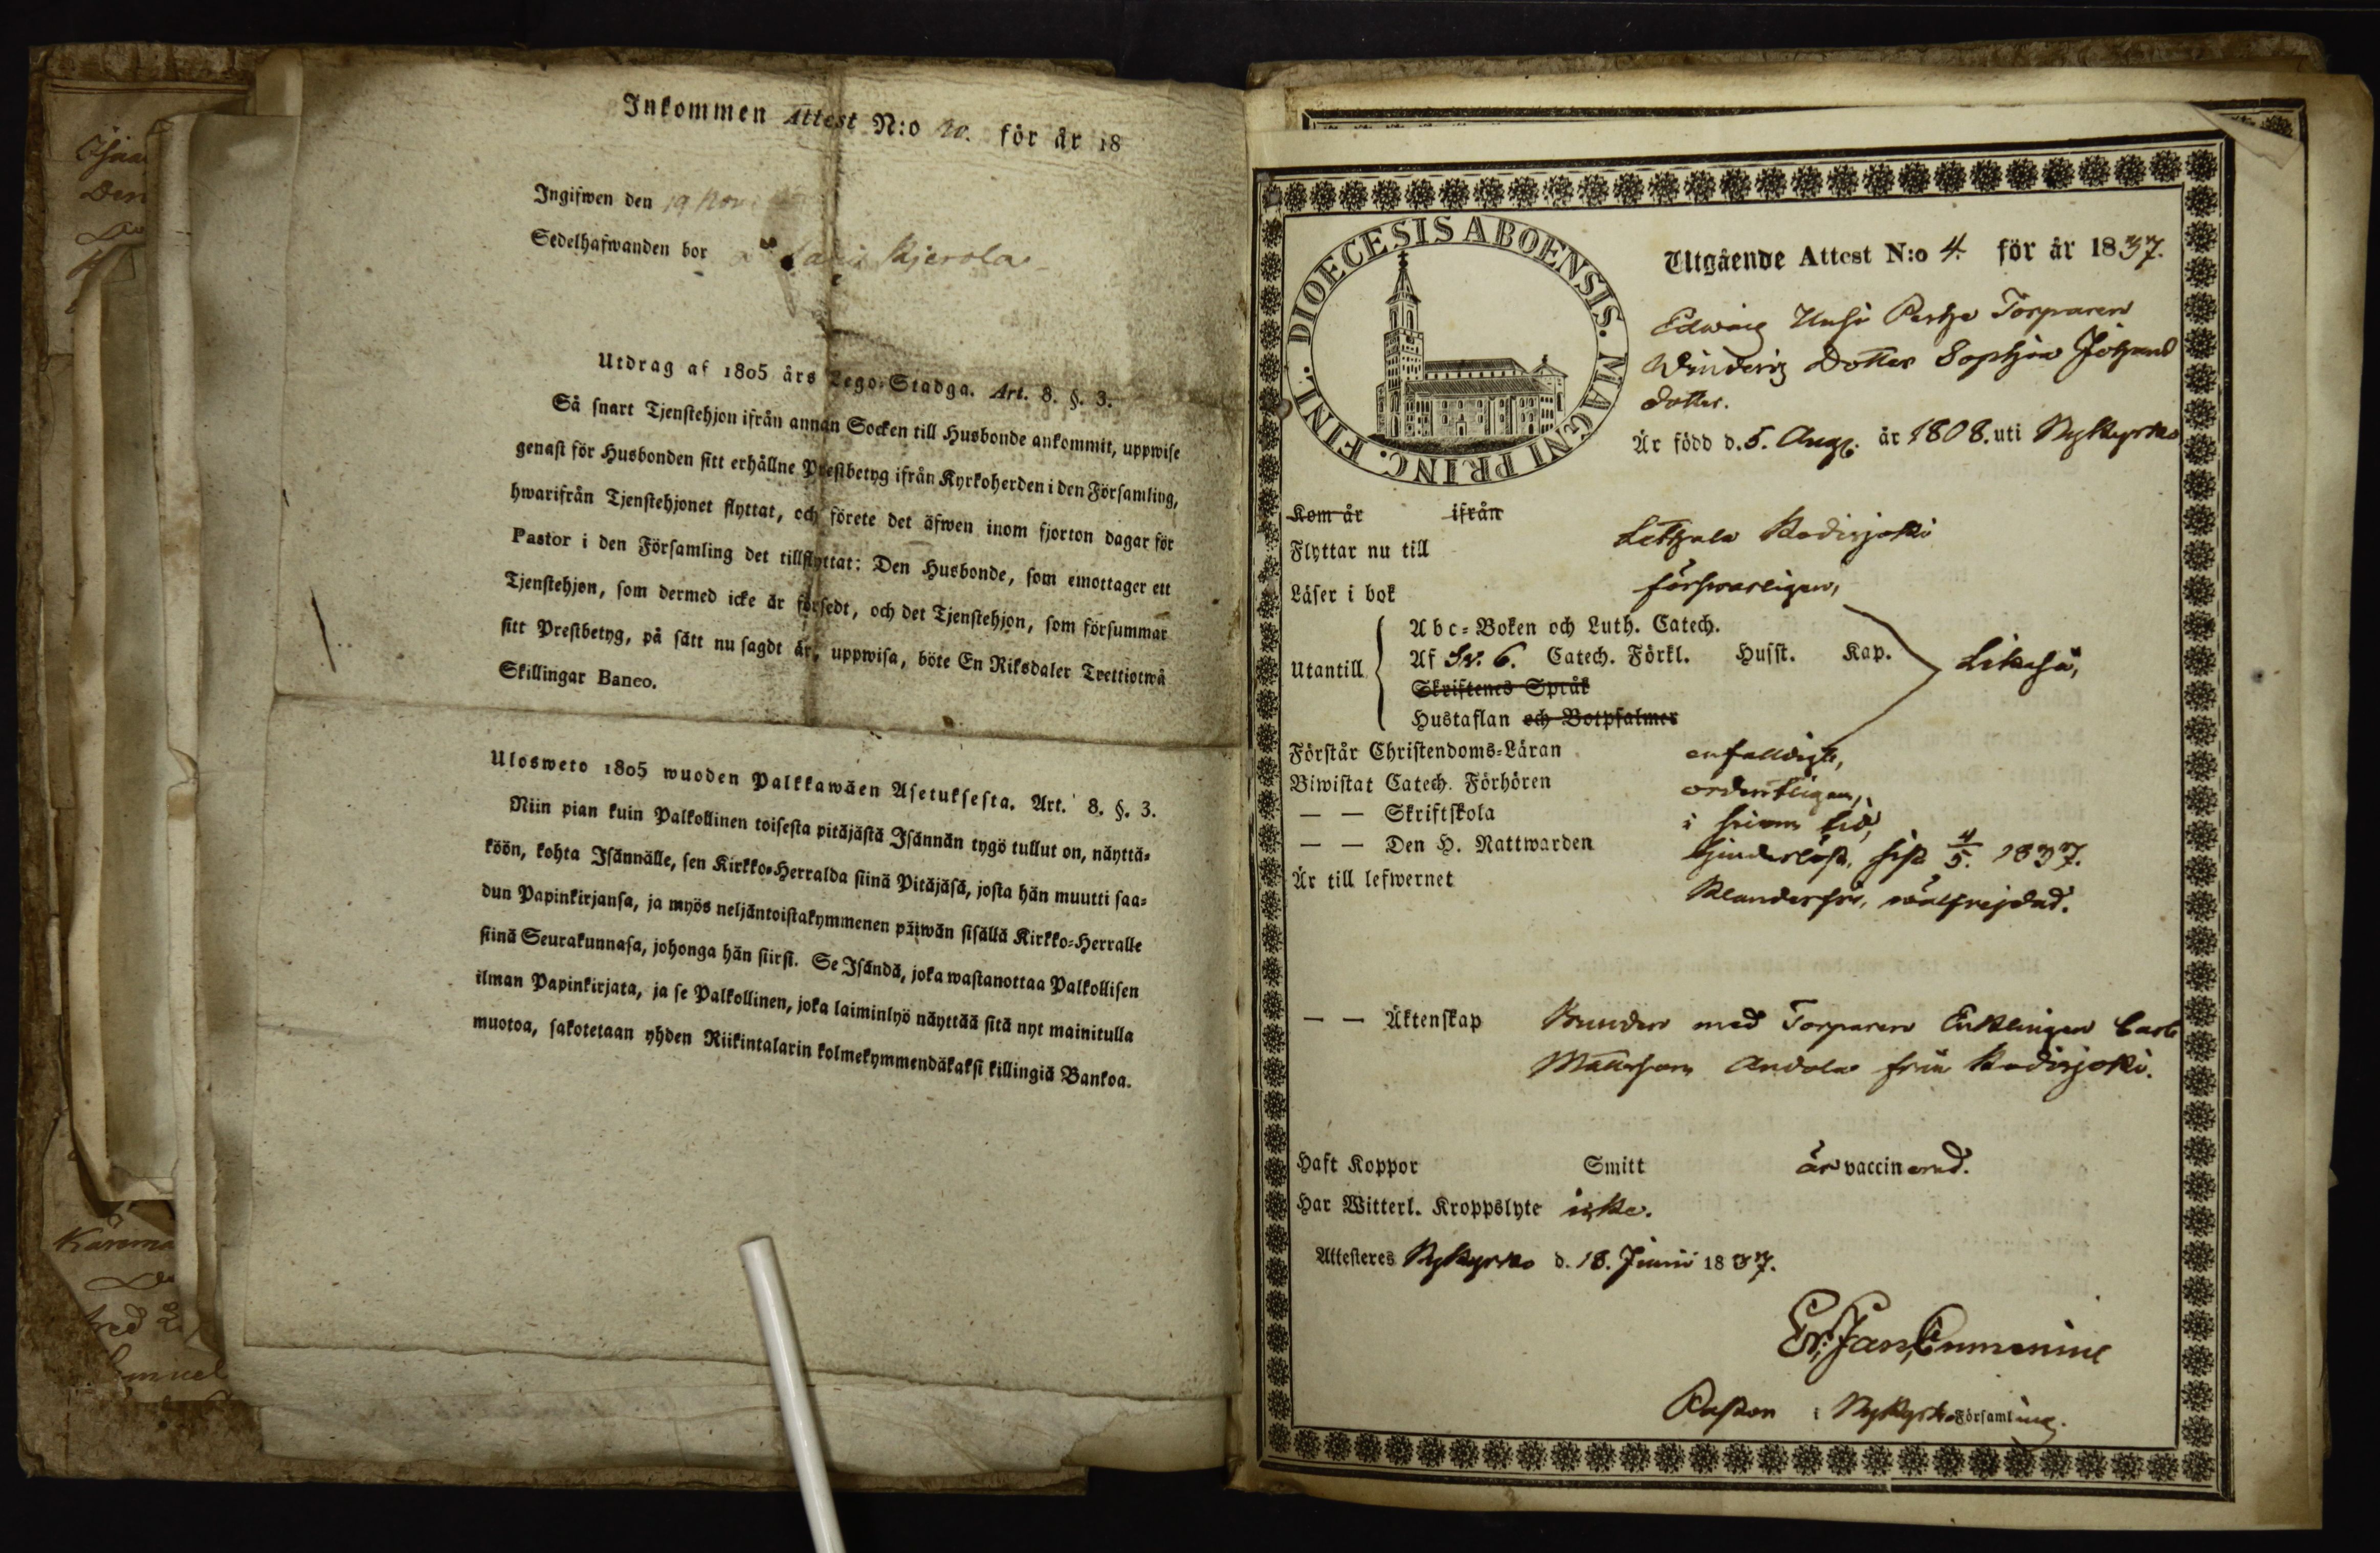 Inkommen Attest N:o 20. för år 18
Ingifwen den 19 Nov
Sedelhafwanden bor Kjerola
Utdrag af 1805 års Lego-Stadga. Art. 8. §. 3.
Så snart Tjenstehjon ifrån annan Socken till Husbonde ankommit, uppwise
genast för Husbonden sitt erhållne Prestbetyg ifrån Kyrkoherden i den Församling,
hwarifrån Tjenstehjonet flyttat, och förete det äfwen inom fjorton dagar för
Pastor i den Församling det tillflyttat: Den Husbonde, som emottager ett
Tjenstehjon, som dermed icke är försedt, och det Tjenstehjon, som försummar
sitt Prestbetyg, på sätt nu sagdt är, uppwisa, böte En Riksdaler Trettiotwå
Skillingar Banco.
Ulosweto 1805 wuoden Palkkawäen Asetuksesta. Art. 8. §. 3.
Niin pian kuin Palkollinen toisesta pitäjästä Isännän tygö tullut on, näyttä-
köön, kohta Isännälle, sen Kirkko-Herralda siinä Pitäjäsä, josta hän muutti saa-
dun Papinkirjansa, ja myös neljäntoistakymmenen päiwän sisällä Kirkko-Herralle
siinä Seurakunnasa, johonga hän siirsi. Se Isändä, joka wastanottaa Palkollisen
ilman Papinkirjata, ja se Palkollinen, joka laiminlyö näyttää sitä nyt mainitulla
muotoa, sakotetaan yhden Riikintalarin kolmekymmendäkaksi killingiä Bankoa.
DIOECESIS ABOENSIS. MAGNI PRINC. FINL.
Utgående Attest N:o 4. för år 1837.
Torparen
Dotter Sophia Johans
dotter.
Är född d. 5. Aug. år 1808. uti Nykyrko
Kom år ifrån
Flyttar nu till Lethala Kodisjoki
Läser i bok försvarligen,
Abc-Boken och Luth. Catech.
Utantill Af Sv. 6. Catech. Förkl. Husst. Kap. Likaså,
Skriftenes Språk
Hustaflan och Botpsalmer
Förstår Christendoms-Läran enfalldigt,
Biwistat Catech. Förhören ordentligen,
— — Skriftskola i sinom tid,
— — Den H. Nattwarden hinderlöst, sist 4/5. 1837.
Är till lefwernet klanderfri, wälfrejdad.
— — Äktenskap bunden med Torparen Enklingen Carl
Mattsson Andola från Kodisjoki.
Haft Koppor Smitt är vaccinerad.
Har Witterl. Kroppslyte icke.
Attesteres Nykyrko d. 18. Junii 1837.
Pastor i Nykyrko Församling.